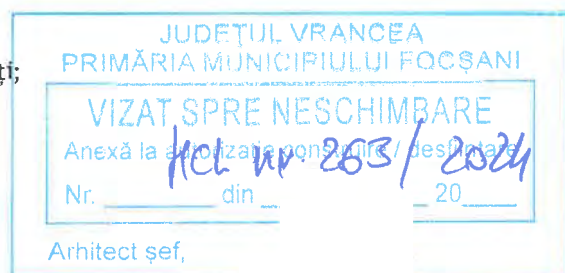 ți;
JUDEȚUL VRANCEA
PRIMĂRIA MUNICIPIULUI FOCȘANI
VIZAT SPRE NESCHIMBARE
Anexă la autorizație construire / desființare
HCL nr. 263 / 2024
Nr. ________ din ________ 20____
Arhitect șef,